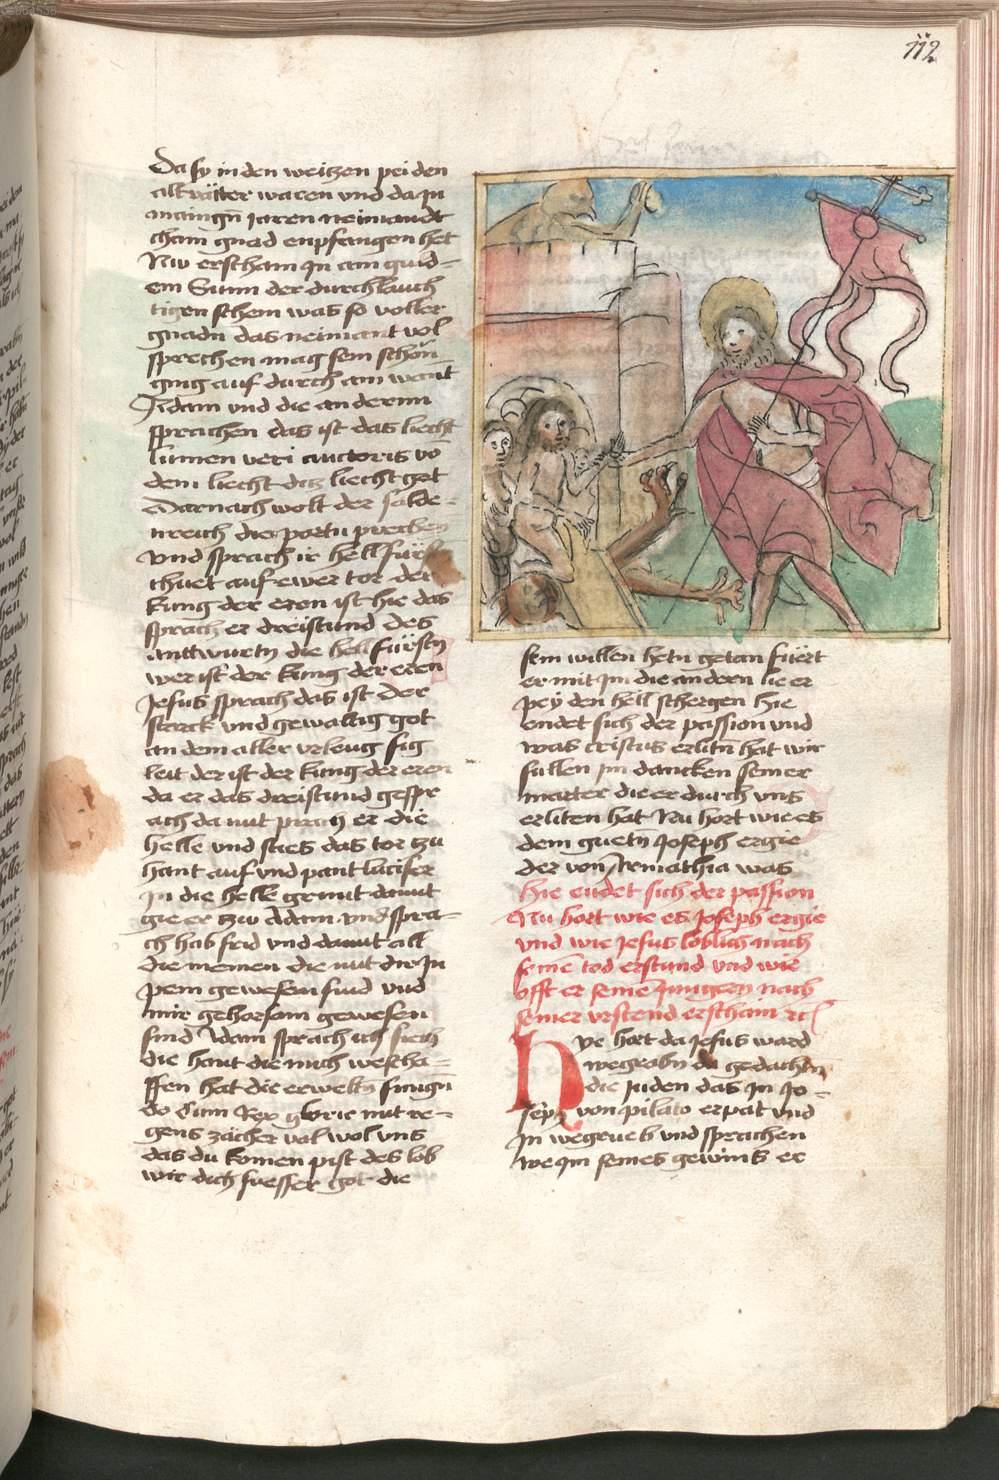 112
Da sy in den weitzen pei den
altväter waren vnd da in
maingn jaren neimandt
cham gnad enpfangen het
Nw erscham in am guld-
em Sunn der durchlauch
tigen schein was so voller
gnadn das neimant vol
sprechen mag sein schön
ging auf durch am want
Adam vnd die andernn
sprachen das ist das liecht
lumen veri auctoris vō
dem liecht ditz liecht get
Darnach wolt der sälde-
nreich die portn prechen
vnd sprach ir hell
thuet auf ewer tor der
kung der eren ist hie das
sprach er dreistund des
anttwurtn die hell fürstn
wer ist der kung der eren
Jesus sprach das ist der
starck vnd gewaltig got
an dem aller vrleug sig
leit der ist der kung der eren
da er das dreistund gespr
ach da mit prach er die
helle vnd sties das tor zu
hant auf vnd pant lucifer
in die helle grunt damit
gie er zw Adam vnd spra-
ch hab frid vnd damit all
die meinen die mit dir in
pein gewesen sind vnd
mir gehorsam gewesen
sind Adam sprach ich siech
die hant die mich wescha-
ffen hat die erweltn sungn
do Cum Rex glorie mit re-
gens zächer val wol vns
das du komen pist des lob
wir dich suesser got die
sein willen hetn getan füert
er mit im die andern lie er
pey den hell schergen hie
endet sich der passion vnd
was cristus erlitn hat wir
sullen im dancken seiner
marter die er durch vns
erliten hat Nu hort wie es
dem guetn Joseph ergie
der von Armathia was
Hie endet sich der passion
Nu hort wie es Joseph ergie
vnd wie Jesus löblich nach
seinē tod erstund vnd wie
offt er seine Jungern nach
seiner vrstend erscham
ye hort da Jesus ward
wegrabn da gedachtn
die juden das in jo-
seph von pilato erpat vnd
in wegrueb vnd sprachen
we im seines gewins er